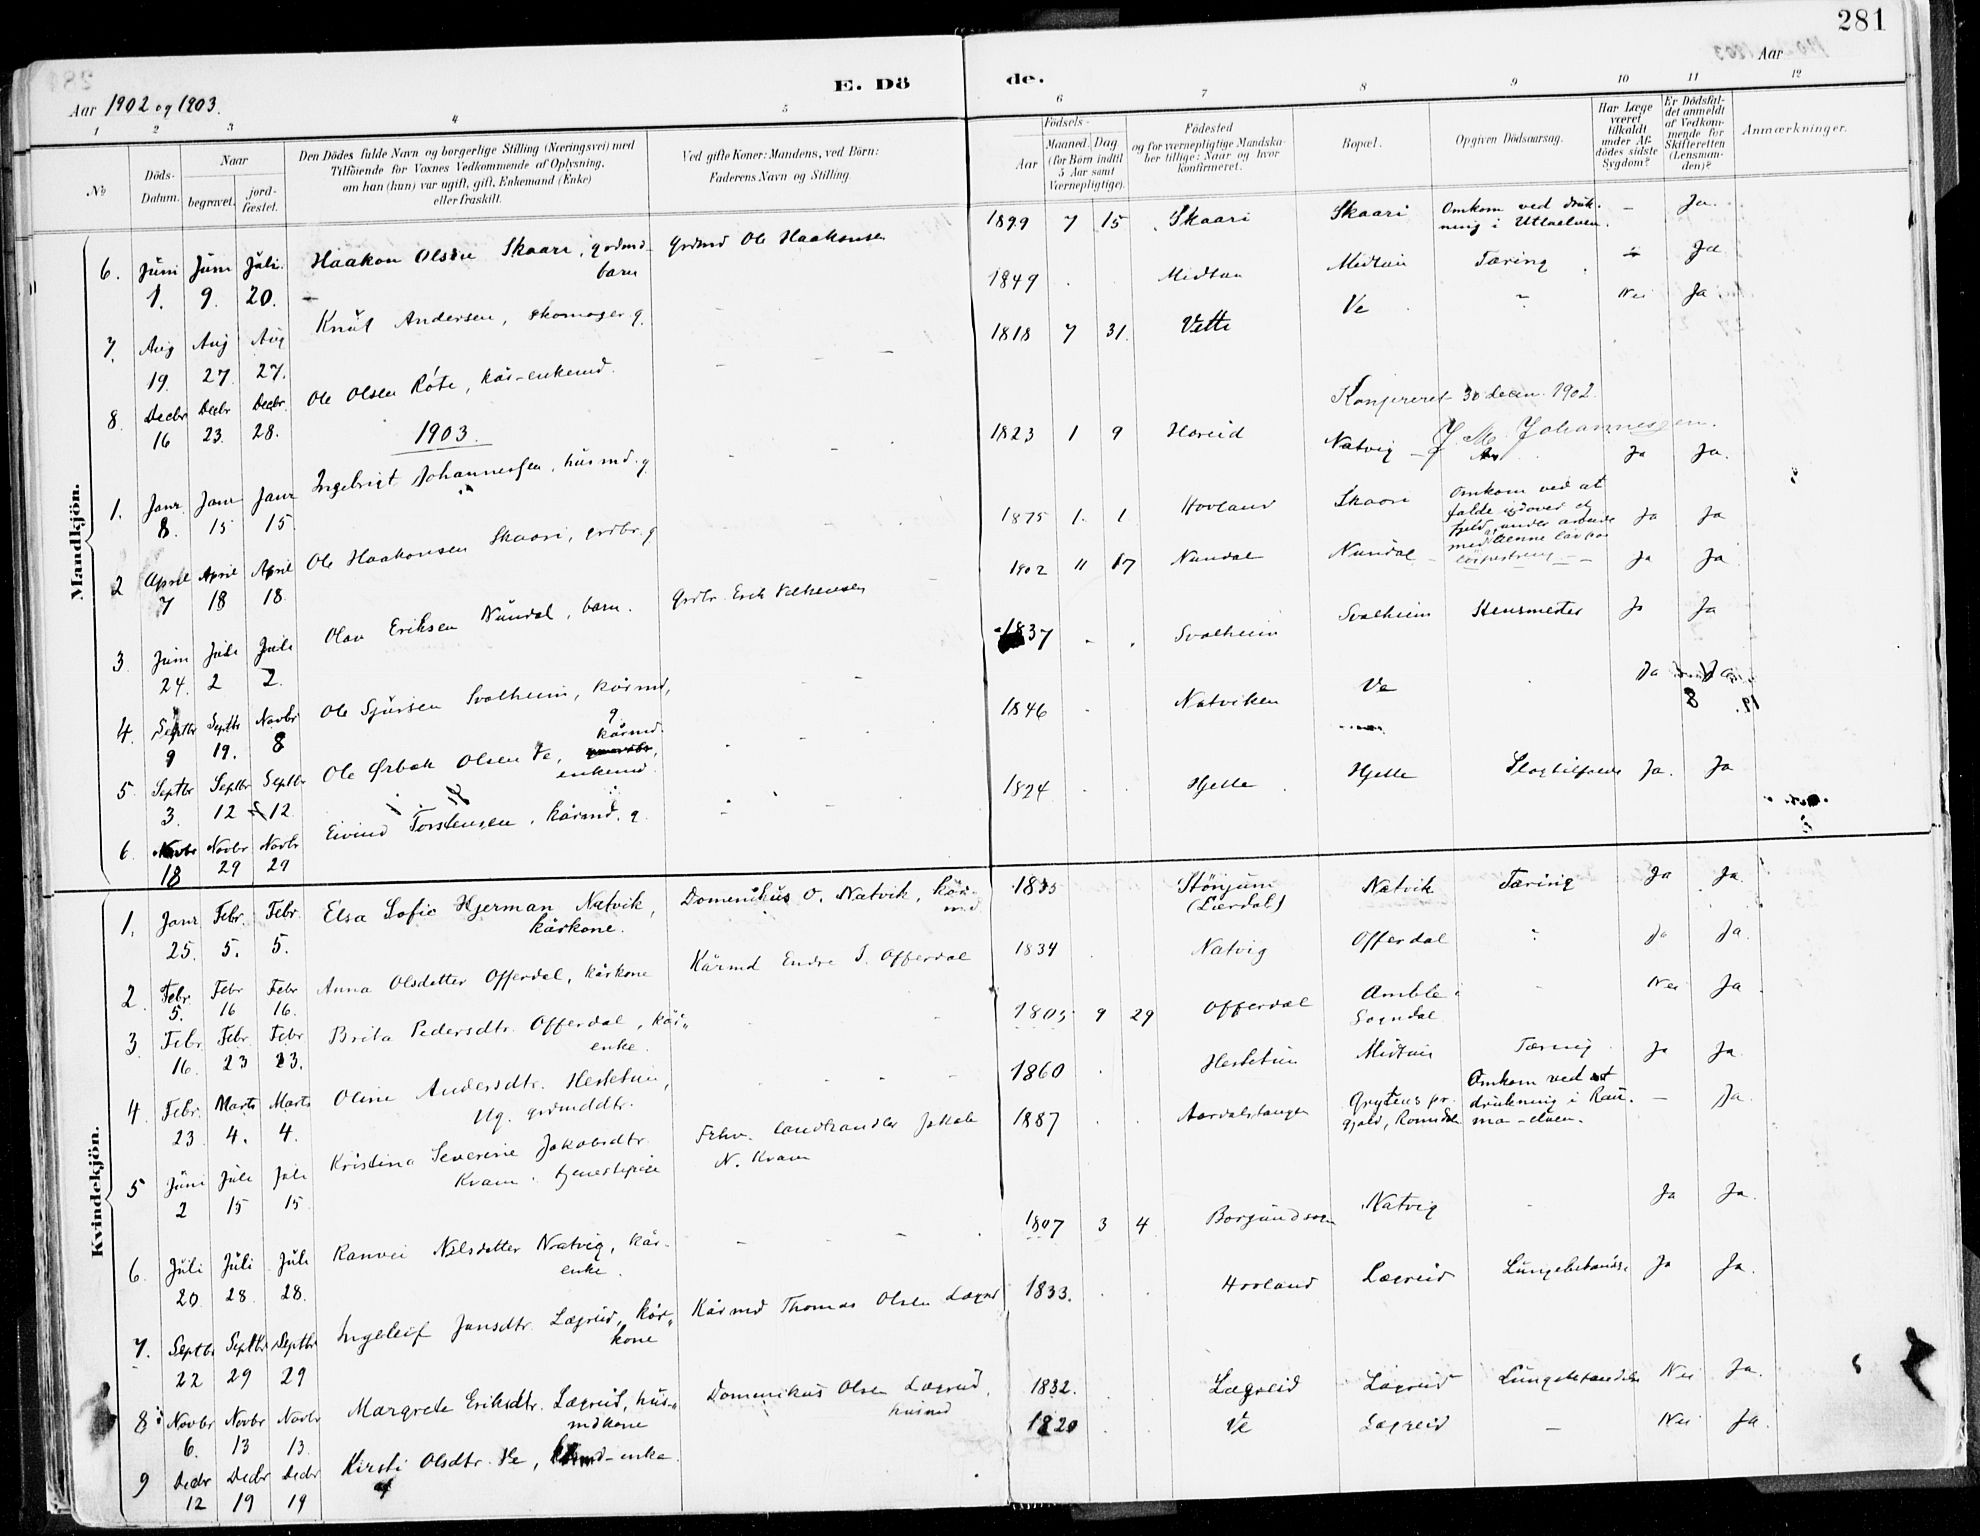 281
Aar 1902 og 1903.
E. Dö
de.
Aar
1 2 3 4 5 6 7 8 9 10 11 12
No
Döds-
Datum.
Naar
begravet.
jord-
fæstet.
Den Dödes fulde Navn og borgerlige Stilling (Næringsvei) med
Tilföiende for Voxnes Vedkommende af Oplysning,
om han (hun) var ugift, gift, Enkemand (Enke)
eller fraskilt.
Ved gifte Koner: Mandens, ved Börn:
Faderens Navn og Stilling.
Födsels-
Aar
Maaned. Dag
(for Börn indtil
5 Aar samt
Værnepligtige).
Födested
og for værnepligtige Mandska-
ber tillige: Naar og hvor
konfirmeret.
Bopæl.
Opgiven Dödsaarsag.
Har Læge
været
tilkaldt
under Af-
dödes sidste
Sygdom?
Er Dödsfal-
det anmeldt
af Vedkom-
mende for
Skifteretten
(Lensman-
den)?
Anmærkninger.
Mandkjön.
6. Juni 1. Juni 9. Juli 20. Haakon Olsen Skaari, grdmd- barn Grdmd Ole Haakonsen 1899 7 15 Skaari Skaari Omkom ved druk- ning i Utlaelven. – Ja.
7. Aug 19. Aug 27. Aug 27. Knut Andersen, skomager g. 1849 Midtun Midtun Tæring Ja
8. Decbr 16 Decbr 23. Decbr 28. Ole Olsen Röte, kår-enkemd. 1818 7 31. Vette Ve Nei Ja
Konfereret 30 decem. 1902.
J. M. Johannesen.
1903.
1. Janr. 8. Janr 15 Janr 15. Ingebrigt Johannessen, husmd. g 1823 1 9 Hareid Natvig Ja Ja.
2 April 7 April 18 April 18. Ole Haakonsen Skaari, grdbr. g 1875 1. 1 Hovland Skaari Omkom ved at falde udover et fjeld, under arbeide med Ja Ja
3. Juni 24. Juli 2 Juli 2. Olav Eriksen Nundal, barn. Grdbr. Erik 1902 11 17 Nundal Nundal Ja Ja
4. Septbr 9 Septbr 19. Novbr 8 Ole Sjursen Svalheim, kårmd, g 1837 Svalheim Svalheim Ja Ja
5. Septbr 3. Septbr 12 Septbr 12. Ole Ørbæk Olsen Ve, kårmd. enkemd. 1846 Natviken Ve Ja
6. Novbr 18 Novbr 29 Novbr 29 Eivind Torstensen, kårmd. g. 1824 Hjelle Hjelle Slagtilfælde Ja. Ja
Kvindekjön.
1. Janr 25. Febr. 5. Febr. 5. Elsa Sofie Hjerman Natvik, kårkone. Domenikus O. Natvik, kår- md 1835 Stönjum (Lærdal) Natvik Tæring Ja Ja.
2. Febr. 5. Febr 16 Febr 16. Anna Olsdatter Offerdal, kårkone Kårmd Endre S. Offerdal 1834 Natvig Offerdal Ja Ja.
3. Febr. 16. Febr. 23 Febr 23. Brita Pedersdtr. Offerdal, kår- enke. 1805 9 29 Offerdal Amble i Sogndal Nei Ja
4. Febr. 23 Marts 4. Marts 4. Oline Andersdtr. Hestetun, Ug. grdmddtr. 1860 Hestetun Midtun Tæring Ja Ja.
5 Juni 2 Juli 15 Juli 15. Kristina Severine Jakobsdtr. Kvam. tjenestepige Fhv. landhandler Jakob N. Kvam 1887 Aardalstangen Grytens pr. gjæld, Romsdal Omkom ved drukning i Rau- ma-elven. – Ja.
6. Juli 20 Juli 28. Juli 28. Ranvei Nilsdatter Natvig, kår- enke. 1807 3 4 Borgund sogn Natvig Ja Ja.
7. Septbr 22 Septbr 29 Septbr 29 Ingeleif Jonsdtr. Lægreid, kår- kone Kårmd Thomas Olsen Lægreid 1833. Hovland Lægreid Lungebetændelse Ja Ja.
8 Novbr 6. Novbr 13 Novbr 13. Margrete Eriksdtr. Lægreid, hus- mdkone Domenikus Olsen Lægreid, husmd 1832. Lægreid Lægreid Lungebetændelse Nei Ja.
9 Decbr 12 Decbr 19 Decbr 19 Kirsti Olsdtr. Ve, kårmd-enke. 1820 Ve Lægreid – Nei Ja.